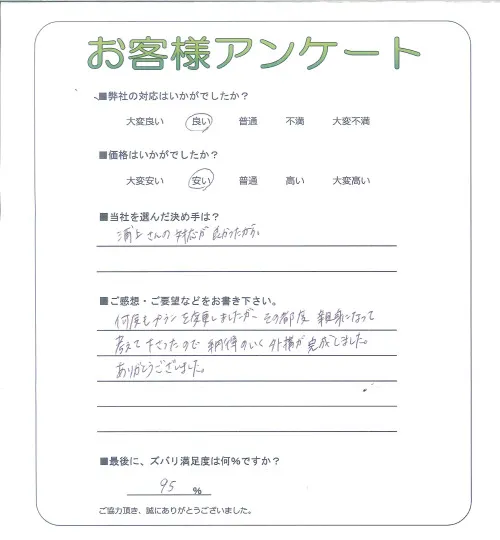 お客様アンケート
■弊社の対応はいかがでしたか？
大変良い 良い 普通 不満 大変不満
■価格はいかがでしたか？
大変安い 安い 普通 高い 大変高い
■当社を選んだ決め手は？
浦上さんの対応が良かったから。
■ご感想・ご要望などをお書き下さい。
何度もプランを変更しましたが その都度 親身になって
考えて下さったので 納得のいく外構が完成しました。
ありがとうございました。
■最後に、ズバリ満足度は何％ですか？
95 ％
ご協力頂き、誠にありがとうございました。